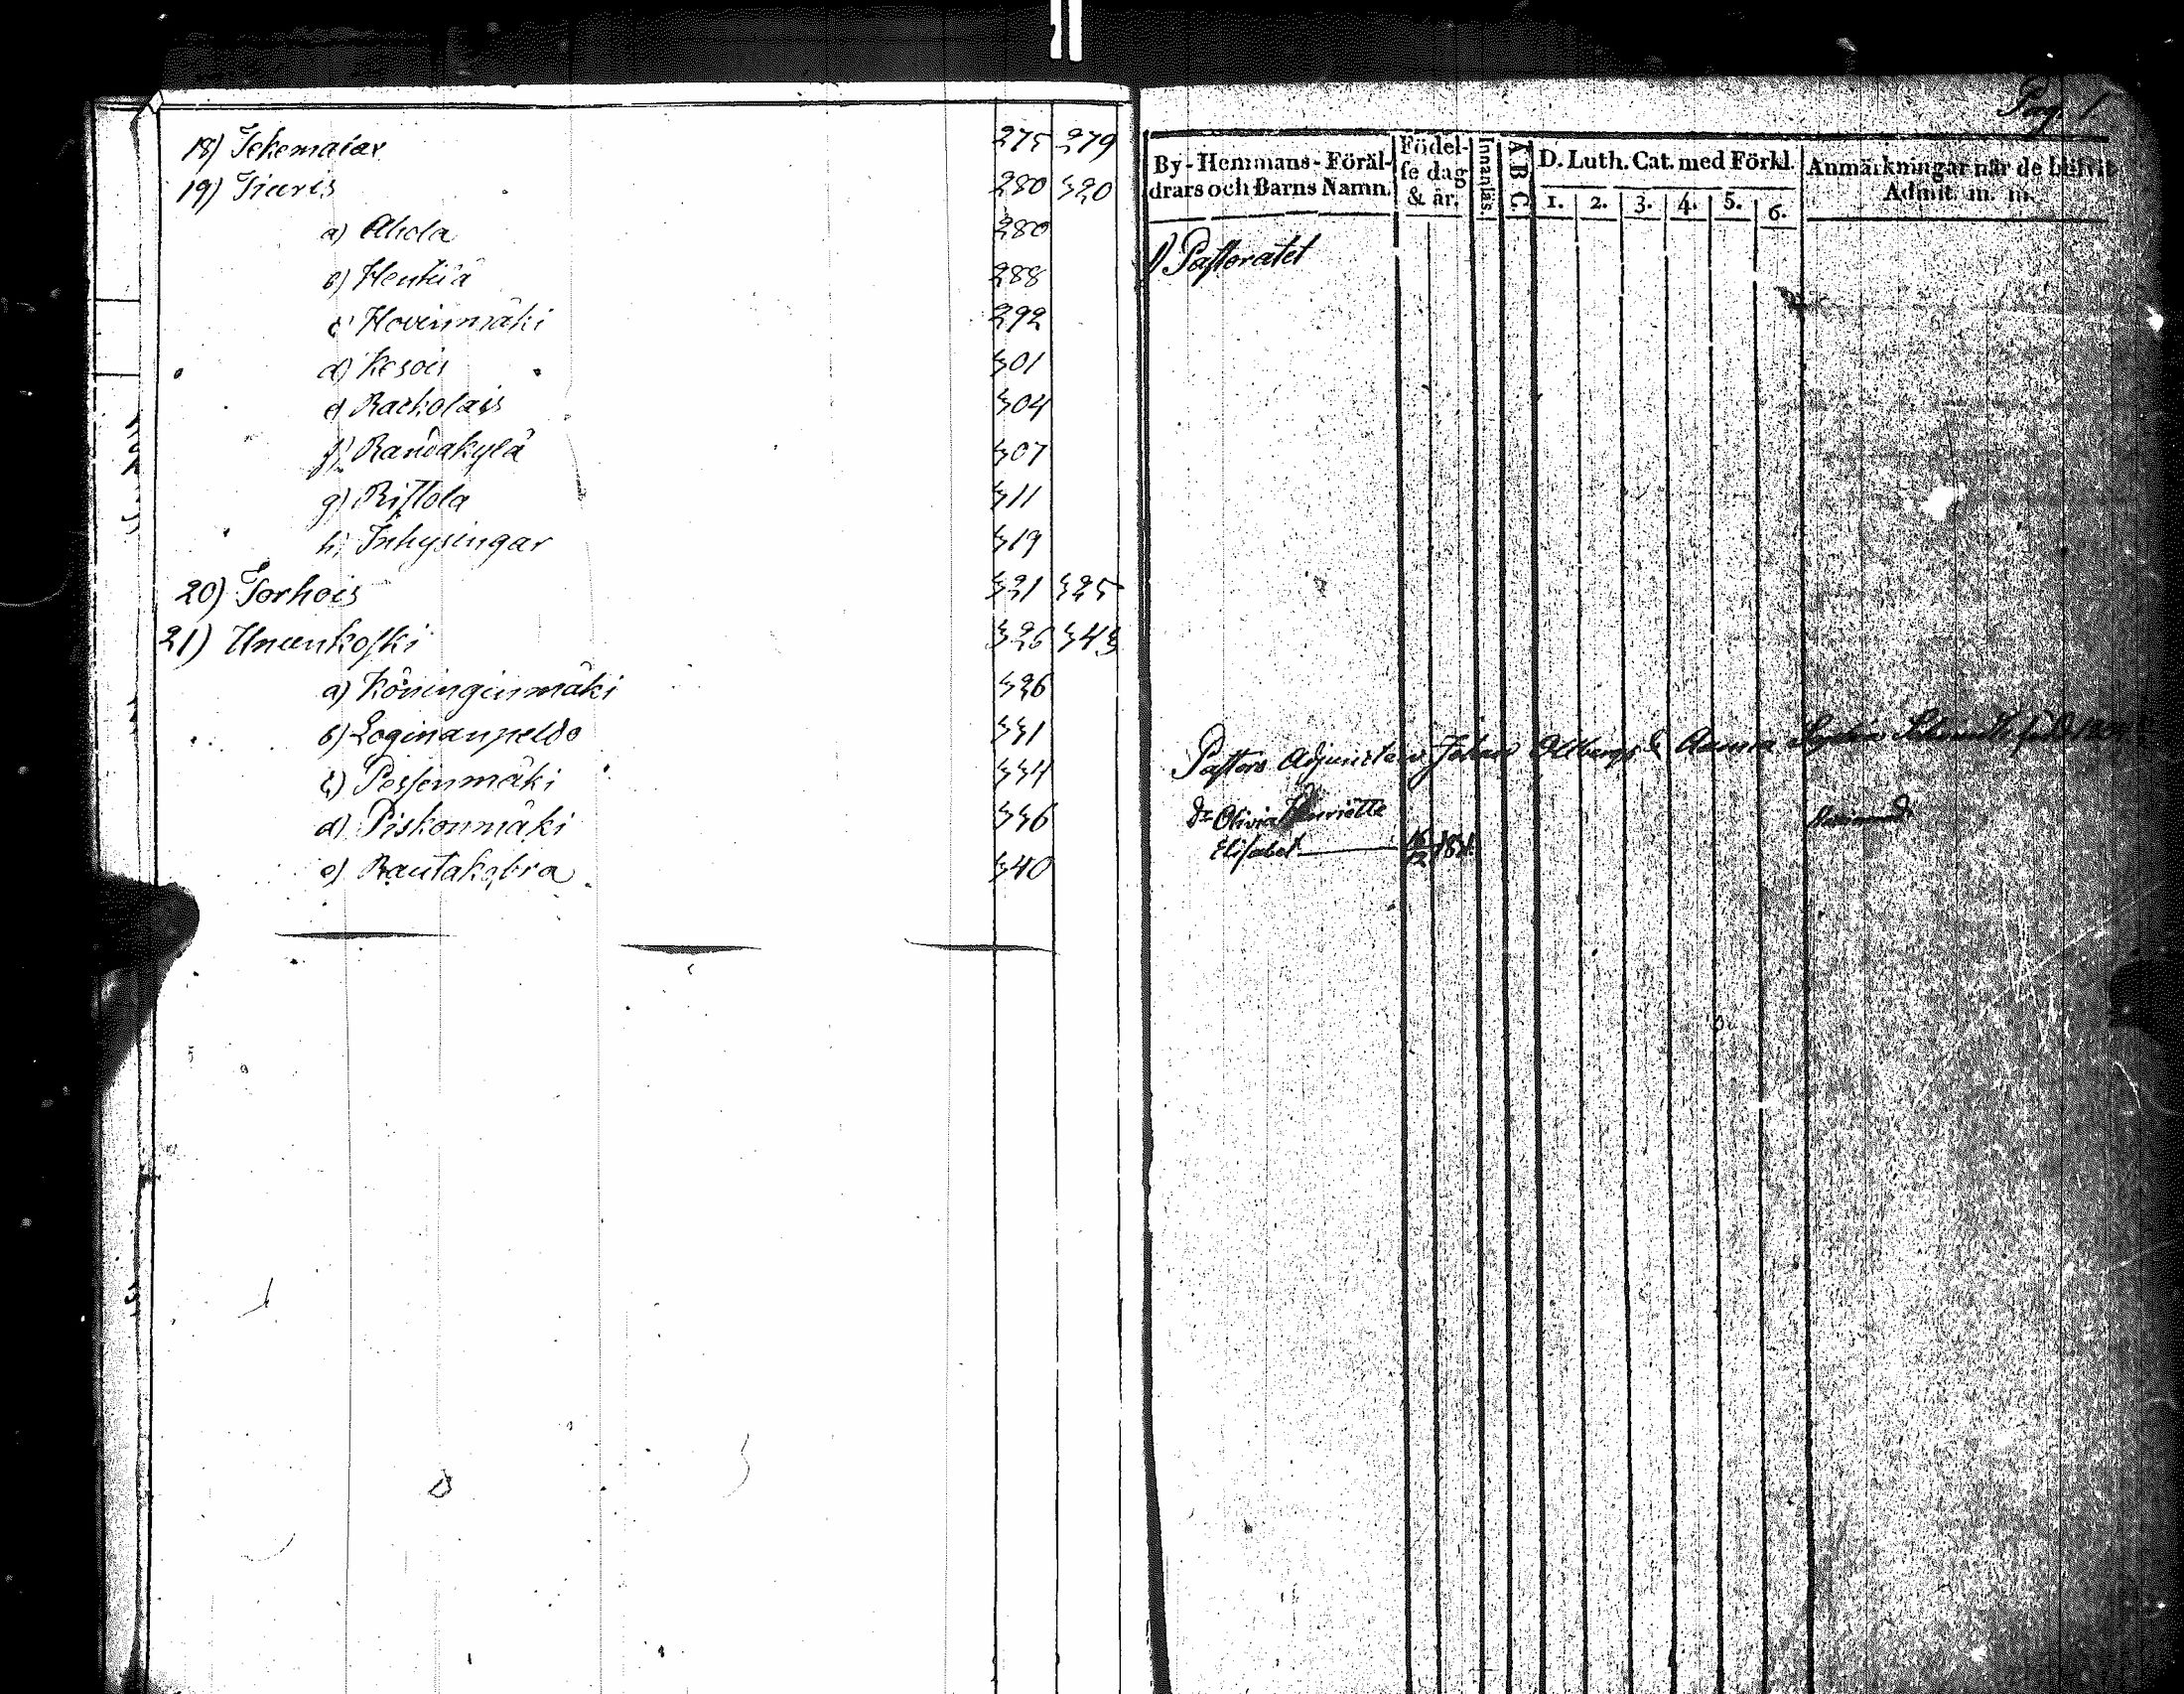 18) Tekemaiar 275 279
19) Tiuris 280 320
a) Ahola 280
b) Hentüä 288
c) Hovinmäki 292
d) Kesois 301
e) Racholais 304
f) Randakylä 307
g) Ristola 311
h) Inhysingar 319
20) Torhois 321 325
21) Unnunkoski 326 343
a) Köninginmäki 326
b) Loginanpeldo 331
c) Pessenmäki 334
d) Piskonmäki 336
e) Rautakobra 340
Pag. 1
By-Hemmans-Föräl-
drars och Barns Namn.
Födel-
se dag
& år.
Innanläs.
A B C.
D. Luth. Cat. med Förkl.
1. 2. 3. 4. 5. 6.
Anmärkningar när de blifvit
Admit. m. m.
1) Pastoratet
Pastors Adjuncten Johan & Anna
Dr Olivia Henriette
Elisabet 16/12